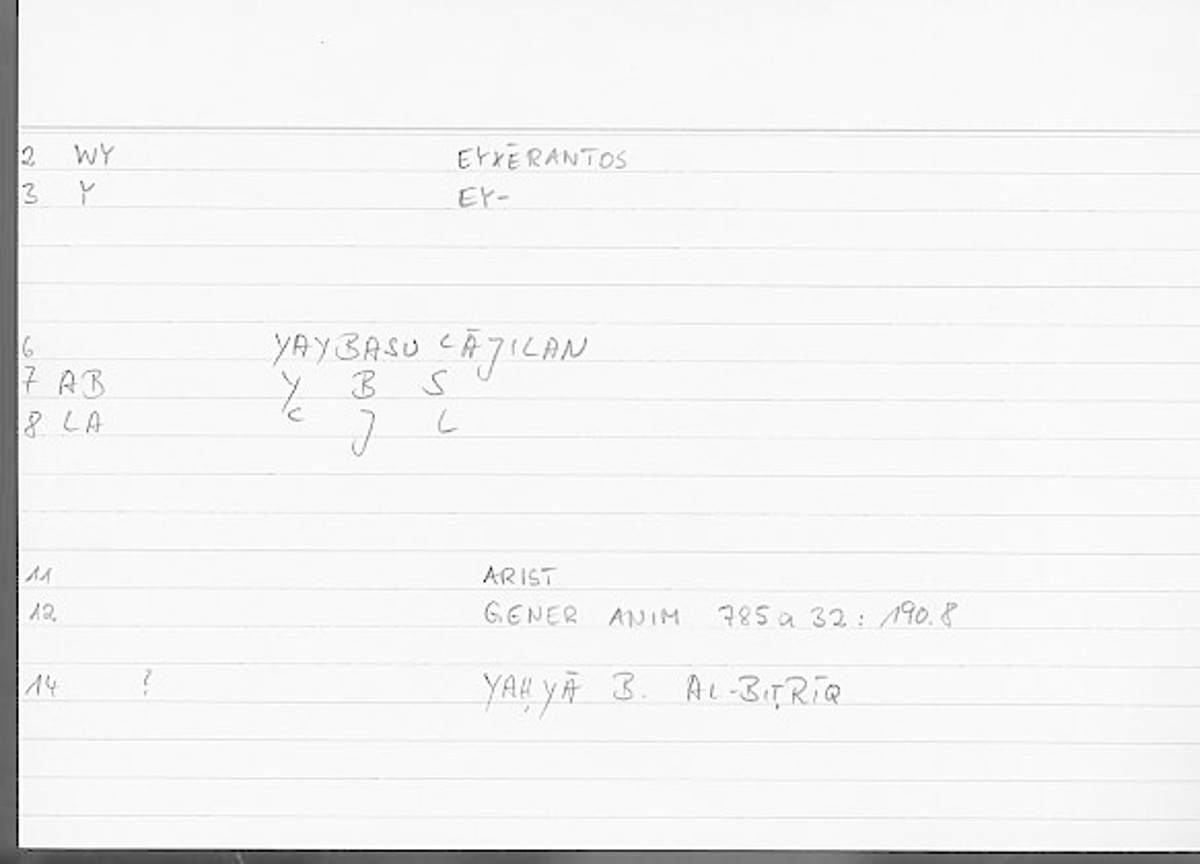 2 WY EYXĒRANTOS
3 Y EY-
6 YAYBASU ʿĀJILAN
7 AB Y B S
8 LA ʿ J L
11 ARIST
12 GENER ANIM 785a32: 190.8
14 ? YAḤYĀ B. AL-BIṬRĪQ